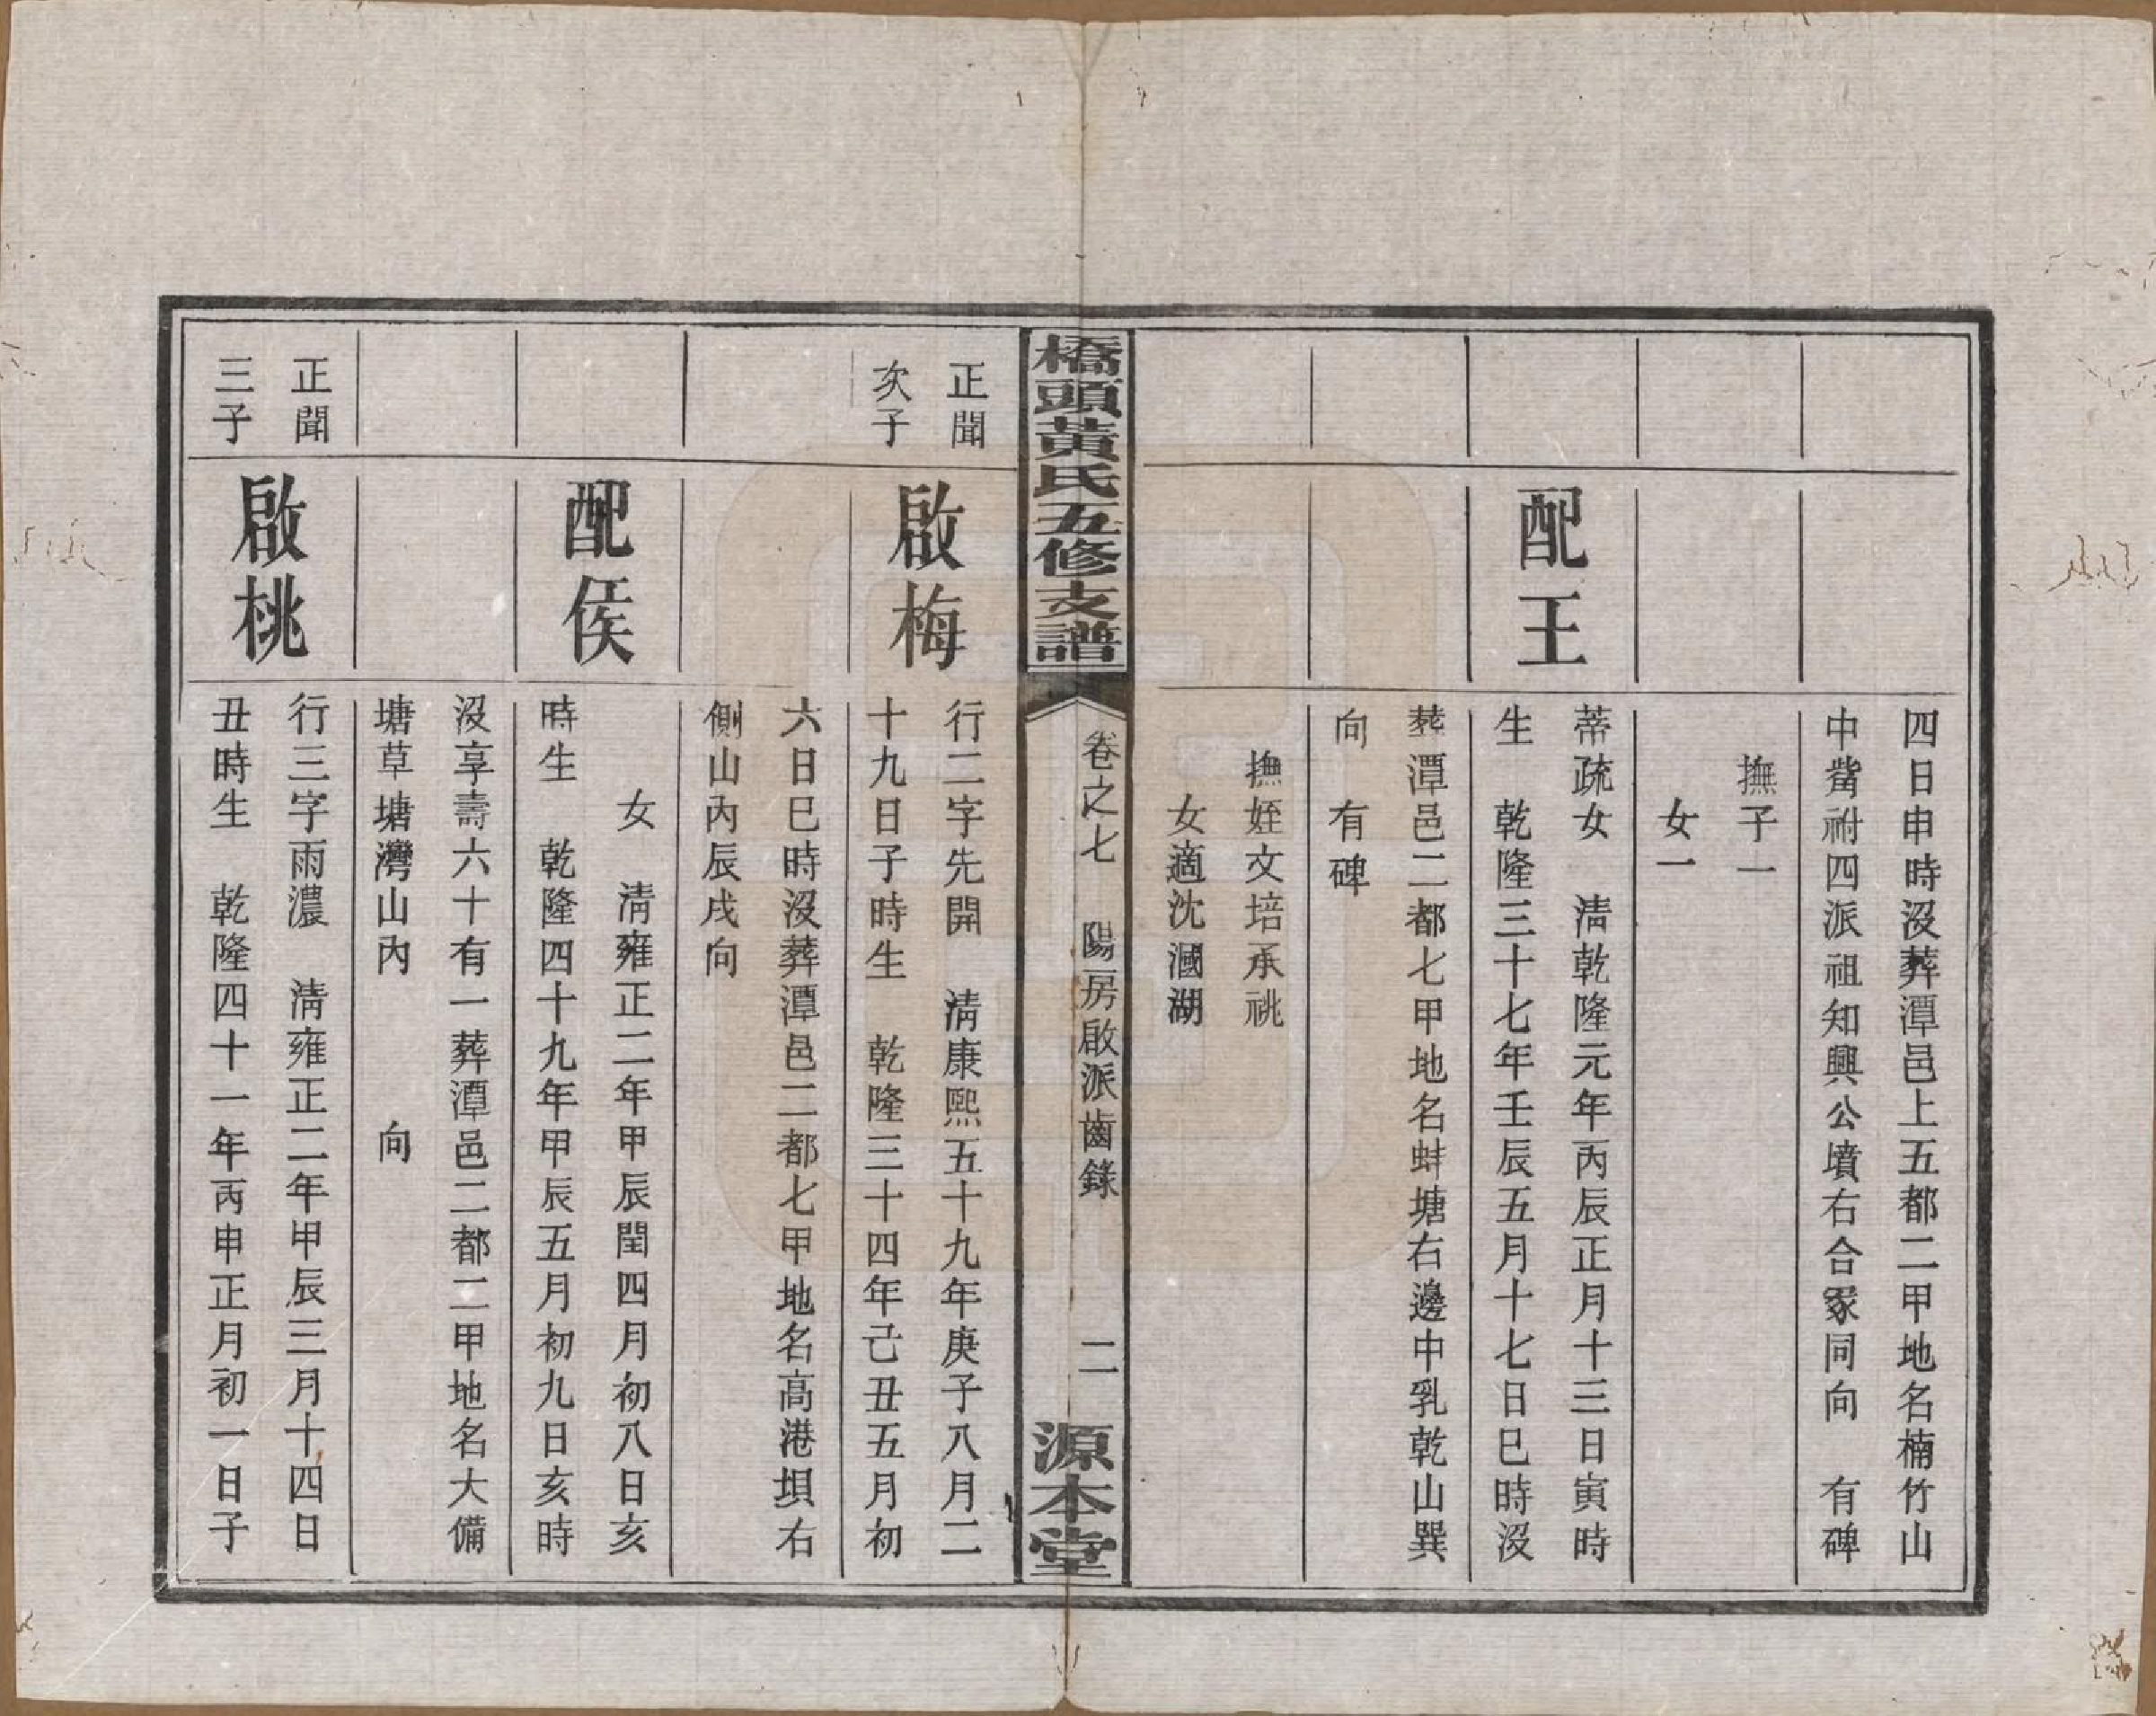 四日申時沒葬潭邑上五都二甲地名楠竹山
中嘴祔四派祖知興公墳右合冢同向　有碑
撫子一
女一
配王
蒂疏女　清乾隆元年丙辰正月十三日寅時
生　乾隆三十七年壬辰五月十七日巳時沒
葬潭邑二都七甲地名蚌塘右邊中乳乾山巽
向　有碑
撫姪文培承祧
女適沈漍湖
橋頭黃氏五修支譜
卷之七　陽房啟派齒錄
二
源本堂
正聞
次子
啟梅
行二字先開　清康熙五十九年庚子八月二
十九日子時生　乾隆三十四年己丑五月初
六日巳時沒葬潭邑二都七甲地名高港垻右
側山內辰戌向
配侯
女　清雍正二年甲辰閏四月初八日亥
時生　乾隆四十九年甲辰五月初九日亥時
沒享壽六十有一葬潭邑二都二甲地名大備
塘草塘灣山內　　　向
正聞
三子
啟桃
行三字雨濃　清雍正二年甲辰三月十四日
丑時生　乾隆四十一年丙申正月初一日子